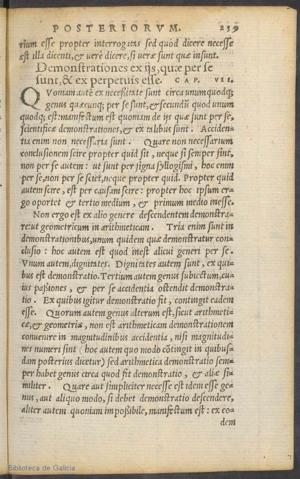 POSTERIORVM. 239
rium esse propter interrogata sed quòd dicere necesse
est illa dicenti, & uerè dicere, si uerè sunt quæ insunt.
Demonstrationes ex ijs, quæ per se
sunt, & ex perpetuis esse. CAP. VII.
QVoniam autē ex necessitate sunt circa unumquodq;
genus quæcunq; per se sunt, & secundū quod unum
quodq; est: manifestum est quoniam de ijs quæ sunt per se,
scientificæ demonstrationes, & ex talibus sunt. Acciden-
tia enim non necessaria sunt. Quare non necessarium
conclusionem scire propter quid sit, neque si semper sint,
non per se autem: ut sunt per signa syllogismi, hoc enim
per se, non per se sciet, neque propter quid. Propter quid
autem scire, est per causam scire: propter hoc ipsum er-
go oportet & tertio medium, & primum medio inesse.
Non ergo est ex alio genere descendentem demonstra-
re ut geometricum in arithmeticam. Tria enim sunt in
demonstrationibus, unum quidem quod demonstratur con-
clusio: hoc autem est quod inest alicui generi per se.
Vnum autem, dignitates. Dignitates autem sunt, ex qui-
bus est demonstratio. Tertium autem genus subiectum, cu-
ius passiones, & per se accidentia ostendit demonstra-
tio. Ex quibus igitur demonstratio fit, contingit eadem
esse. Quorum autem genus alterum est, sicut arithmeti-
cæ, & geometriæ, non est arithmeticam demonstrationem
conuenire in magnitudinibus accidentia, nisi magnitudi-
nes numeri sint (hoc autem quo modo cōtingit in quibus-
dam posterius dicetur) sed arithmetica demonstratio sem-
per habet genus circa quod fit demonstratio, & aliæ si-
militer. Quare aut simpliciter necesse est idem esse ge-
nus, aut aliquo modo, si debet demonstratio descendere,
aliter autem quoniam impossibile, manifestum est: ex eo-
dem
Biblioteca de Galicia